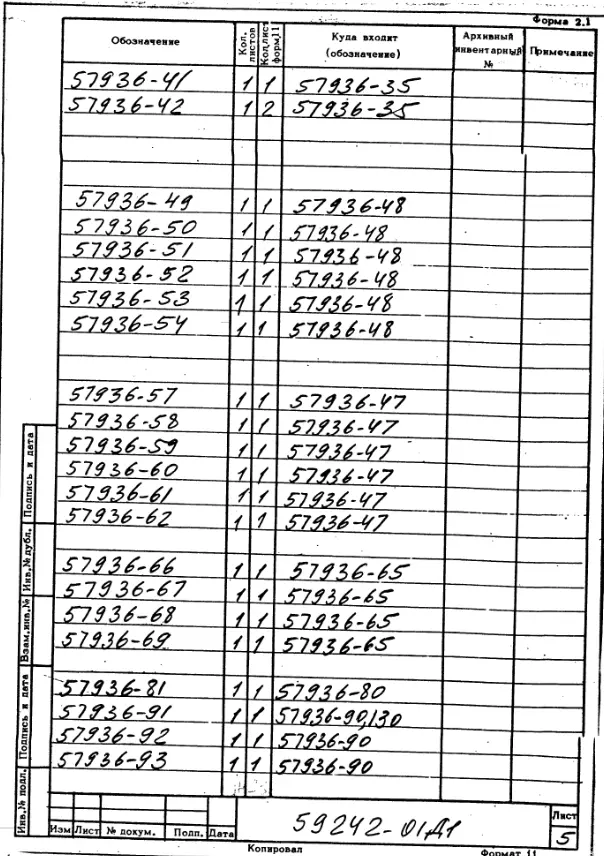 Форма 2.1
Обозначение Кол. листов Кол.лист форм.11 Куда входит (обозначение) Архивный инвентарный № Примечание
57936-41 1 1 57936-35
57936-42 1 2 57936-35
57936-49 1 1 57936-48
57936-50 1 1 57936-48
57936-51 1 1 57936-48
57936-52 1 1 57936-48
57936-53 1 1 57936-48
57936-54 1 1 57936-48
57936-57 1 1 57936-47
57936-58 1 1 57936-47
57936-59 1 1 57936-47
57936-60 1 1 57936-47
57936-61 1 1 57936-47
57936-62 1 1 57936-47
57936-66 1 1 57936-65
57936-67 1 1 57936-65
57936-68 1 1 57936-65
57936-69 1 1 57936-65
57936-81 1 1 57936-80
57936-91 1 1 57936-90,130
57936-92 1 1 57936-90
57936-93 1 1 57936-90
Подпись и дата
Инв.№ дубл.
Взам.инв.№
Подпись и дата
Инв.№ подл.
Изм Лист № докум. Подп. Дата
59242-01Д1
Лист
5
Копировал
Формат 11